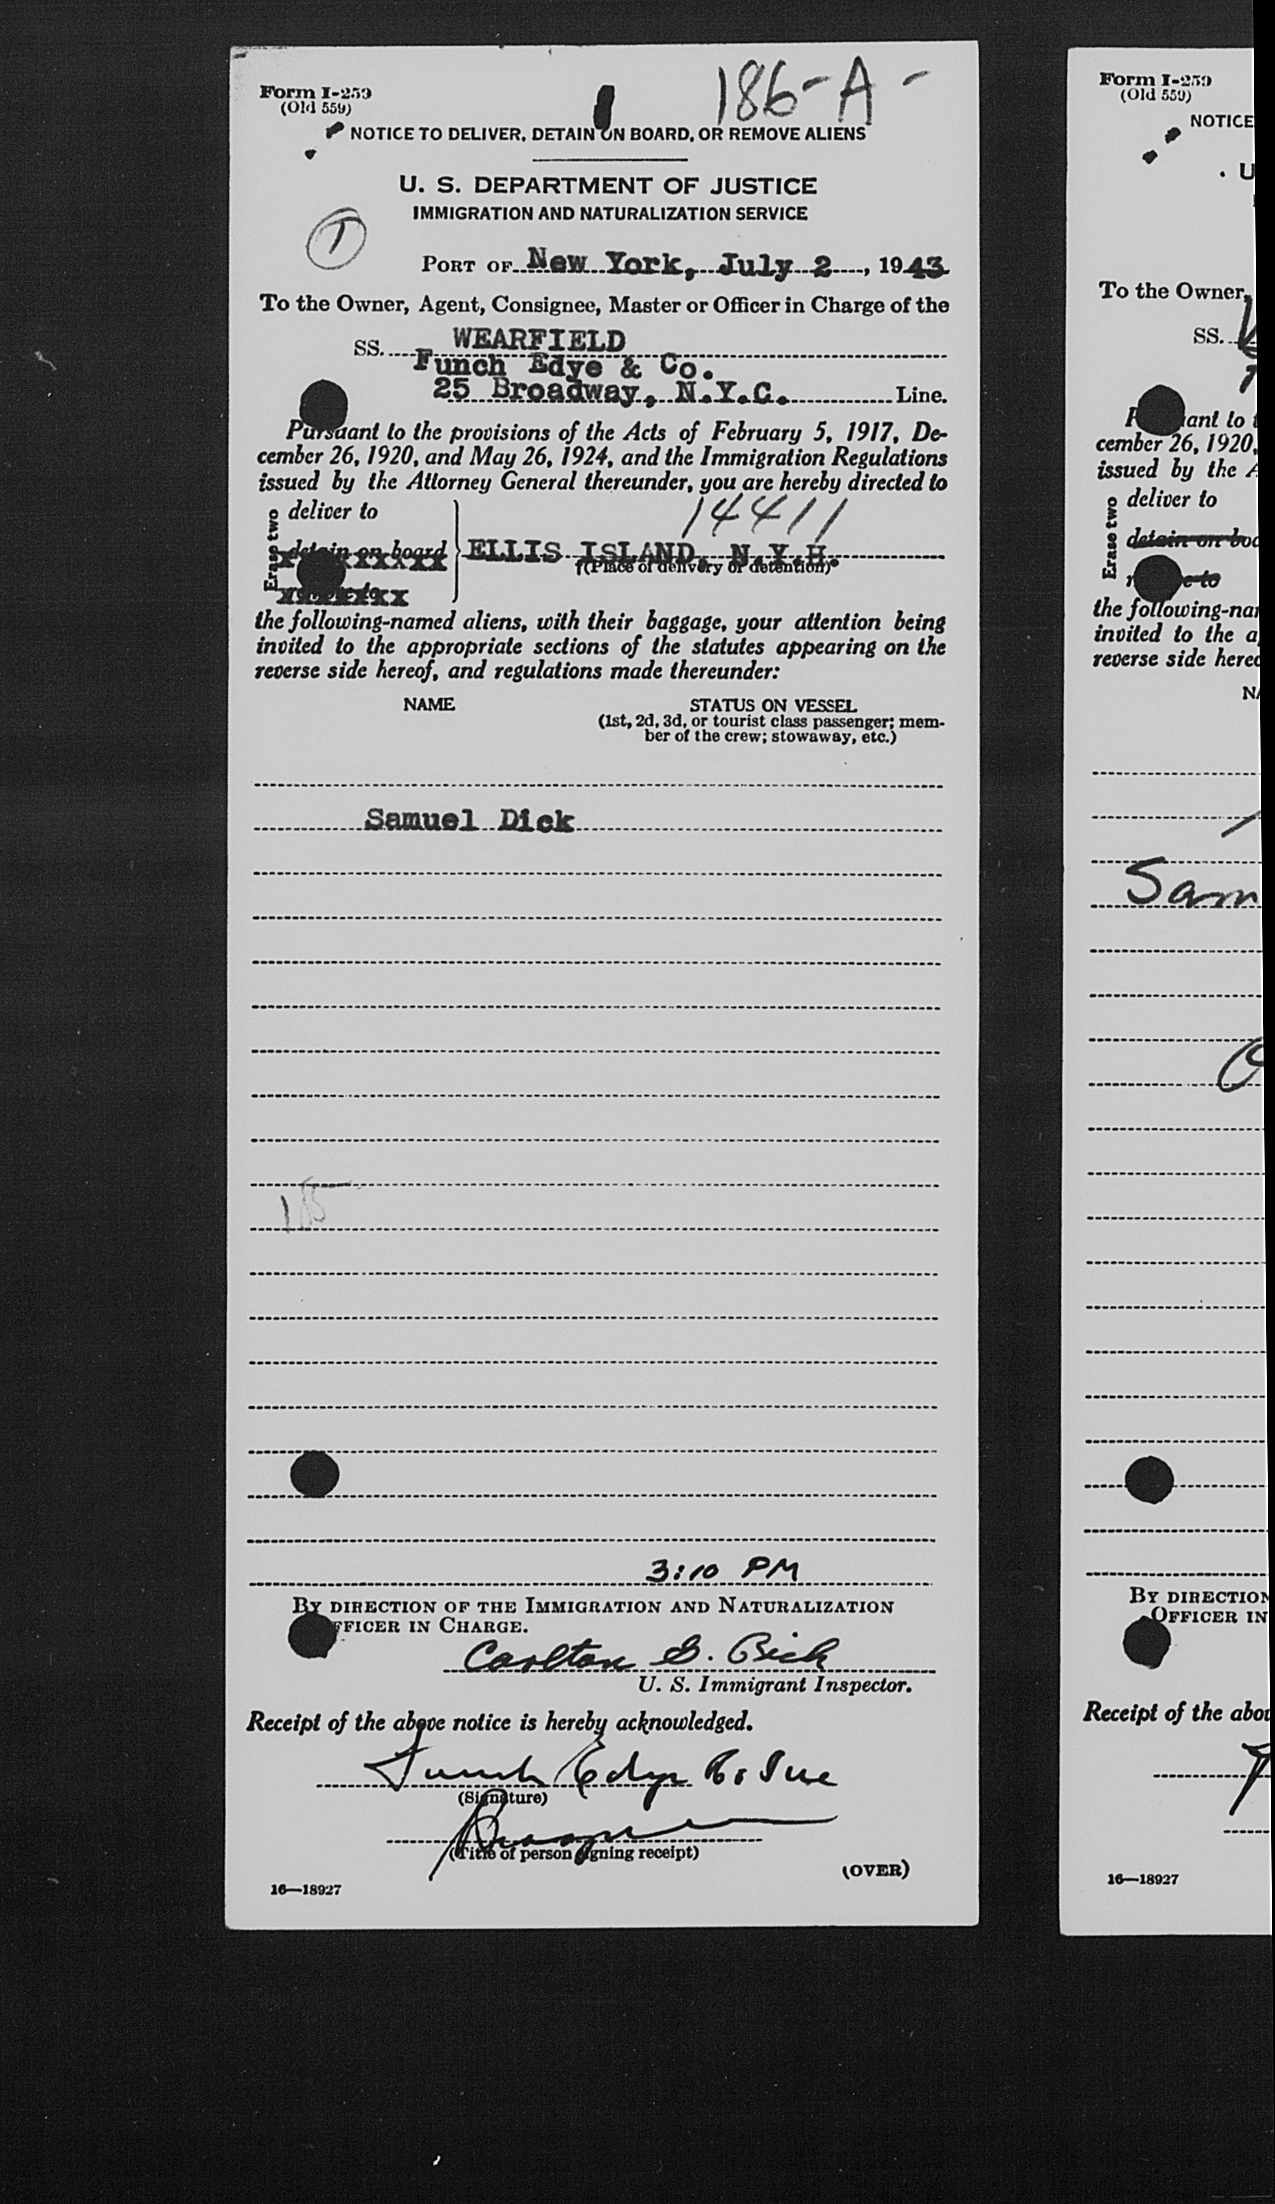 186-A-
Form I-259
(Old 559)
NOTICE TO DELIVER, DETAIN ON BOARD, OR REMOVE ALIENS
U. S. DEPARTMENT OF JUSTICE
IMMIGRATION AND NATURALIZATION SERVICE
PORT OF New York, July 2, 1943
To the Owner, Agent, Consignee, Master or Officer in Charge of the
SS. WEARFIELD
Funch Edye & Co.
25 Broadway, N.Y.C. Line.
Pursuant to the provisions of the Acts of February 5, 1917, De-
cember 26, 1920, and May 26, 1924, and the Immigration Regulations
issued by the Attorney General thereunder, you are hereby directed to
14411
Erase two
deliver to
detain on board
ELLIS ISLAND, N.Y.H.
(Place of delivery or detention)
the following-named aliens, with their baggage, your attention being
invited to the appropriate sections of the statutes appearing on the
reverse side hereof, and regulations made thereunder:
NAME STATUS ON VESSEL
(1st, 2d, 3d, or tourist class passenger; mem-
ber of the crew; stowaway, etc.)
Samuel Dick
3:10 PM
BY DIRECTION OF THE IMMIGRATION AND NATURALIZATION
OFFICER IN CHARGE.
Carlton G. Bick
U. S. Immigrant Inspector.
Receipt of the above notice is hereby acknowledged.
Funch Edye Co Inc
(Signature)
(Title of person signing receipt)
(OVER)
16—18927
Form I-259
(Old 559)
NOTICE
U
To the Owner,
SS.
ant to
cember 26, 1920,
issued by the A
Erase two
deliver to
detain on boa
the following-nar
invited to the a
reverse side herec
NA
Sam
BY DIRECTION
OFFICER IN
Receipt of the abov
16—18927